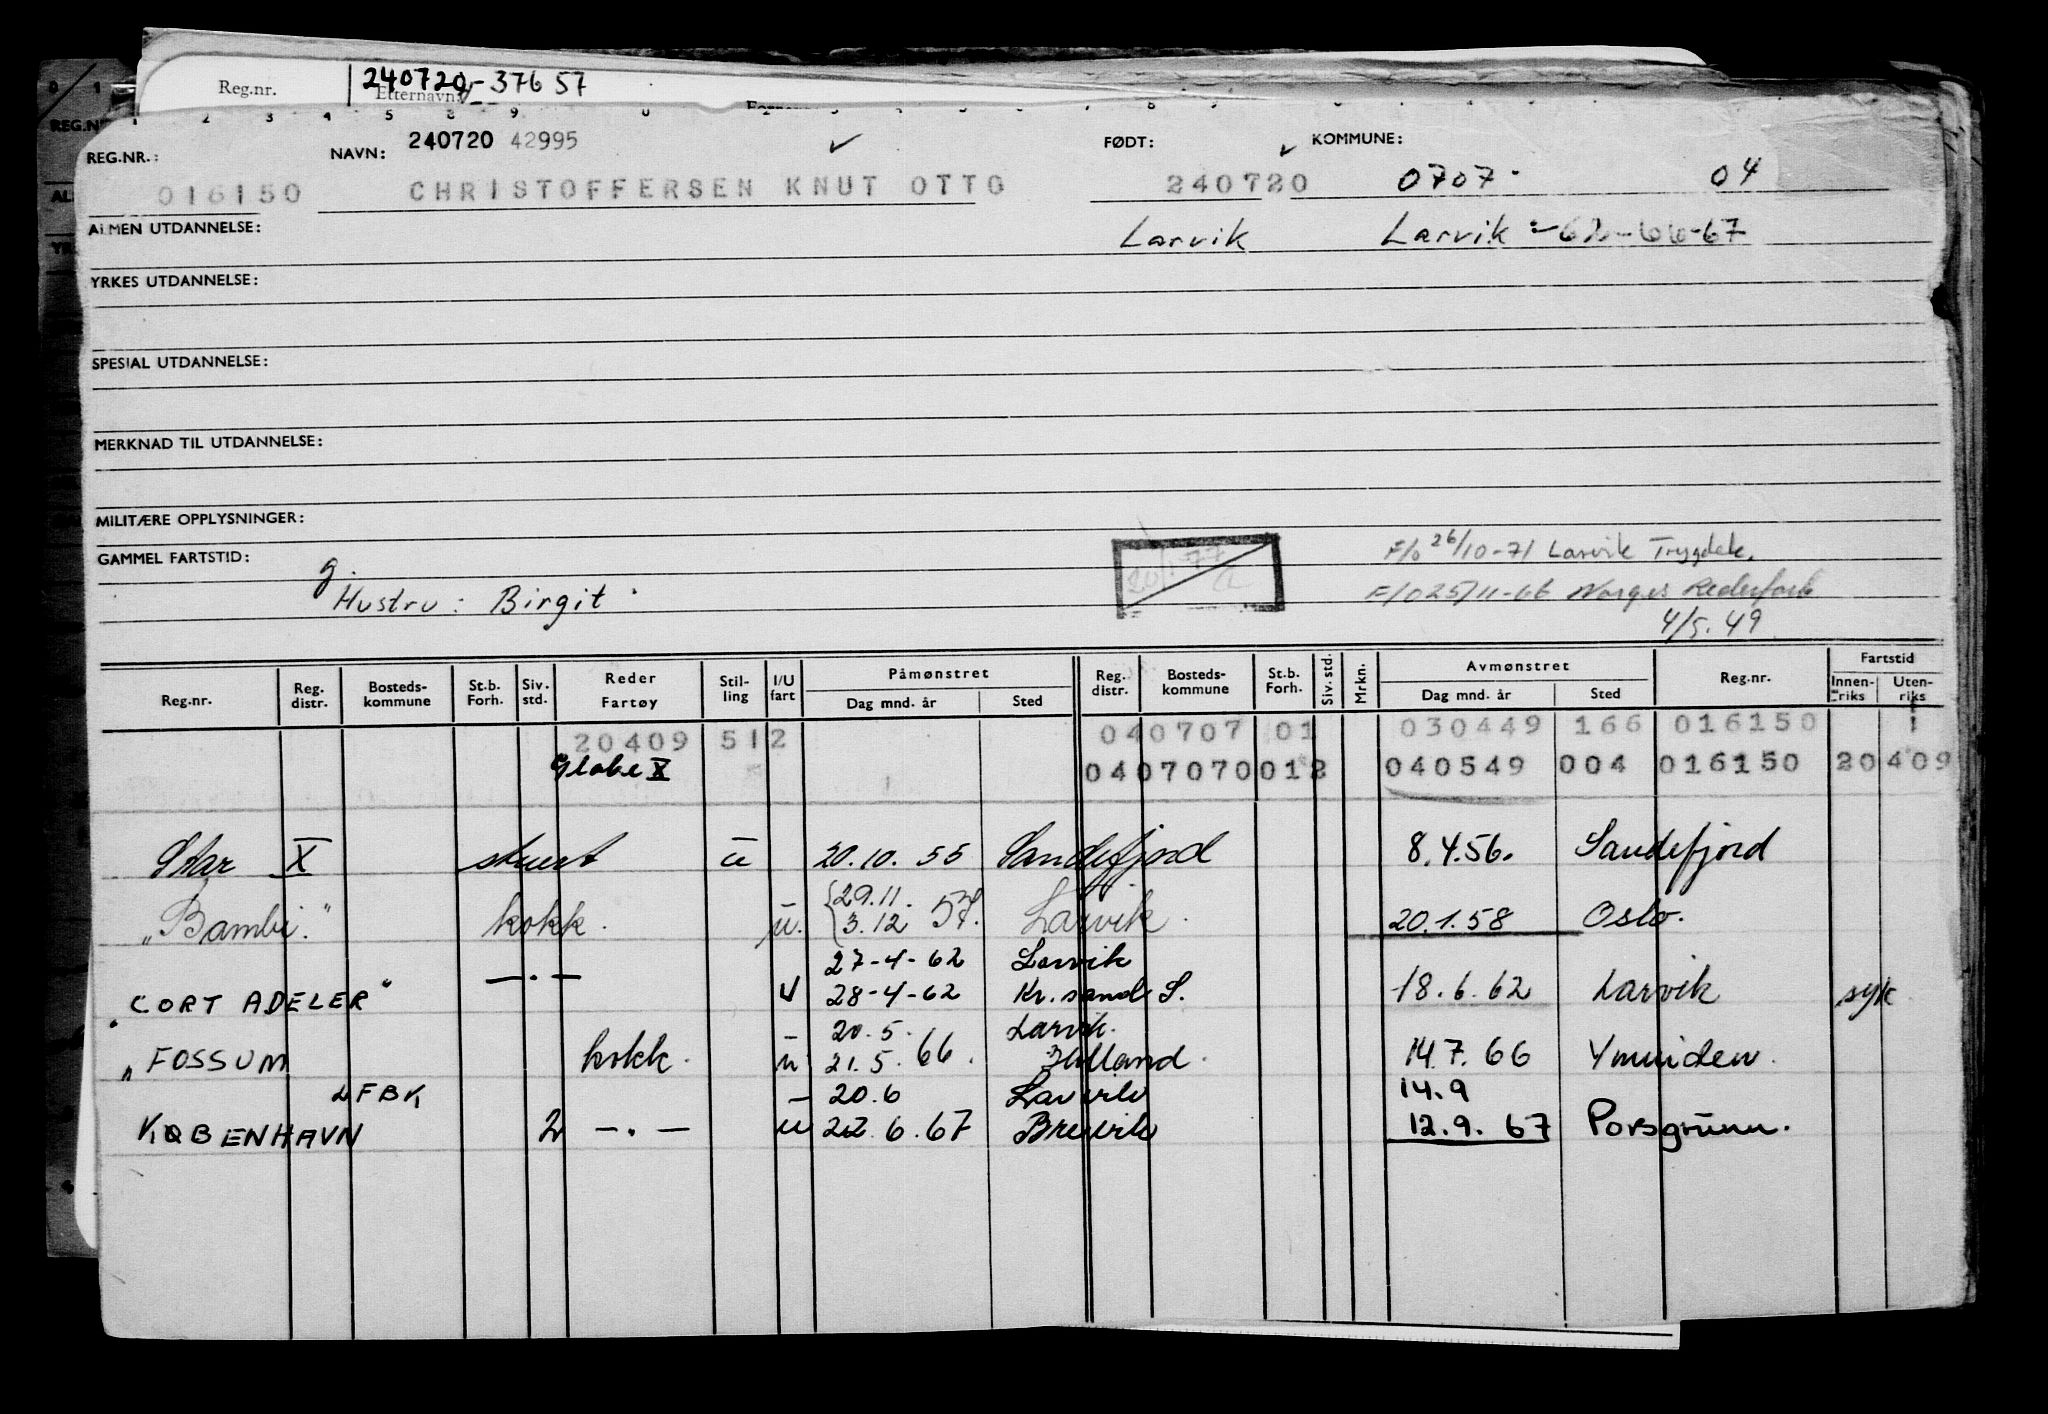 Reg.nr. 240720-37657
Etternavn:
REG.NR.: NAVN: 240720 42995 FØDT: KOMMUNE:
016150 CHRISTOFFERSEN KNUT OTTO 240720 0707 04
ALMEN UTDANNELSE: Larvik Larvik
YRKES UTDANNELSE:
SPESIAL UTDANNELSE:
MERKNAD TIL UTDANNELSE:
MILITÆRE OPPLYSNINGER:
GAMMEL FARTSTID: g. F/o 26/10-71 Larvik Trygdek.
Hustru: Birgit F/o 25/11-66 Norges Rederforb
4/5.49
Reg.nr. Reg. distr. Bosteds-kommune St.b. Forh. Siv. std. Reder Fartøy Stil-ling I/U fart Påmønstret Dag mnd. år Sted Reg. distr. Bosteds-kommune St.b. Forh. Siv. std. Mrkn. Avmønstret Dag mnd. år Sted Reg.nr. Fartstid Innen-riks Uten-riks
20409 512 040707 01 030449 166 016150 1
Globe X 0407070012 040549 004 016150 20409
Star X stuert u 20.10.55 Sandefjord 8.4.56. Sandefjord
"Bambi." kokk. u. {29.11. 3.12 57. Larvik. 20.1.58 Oslo.
27-4-62 Larvik
"CORT ADELER" —.— u 28-4-62 Kr.sand S. 18.6.62 Larvik syk
20.5. Larvik.
"FOSSUM kokk. u 21.5.66. Holland. 14.7.66 Ymuiden.
LFBK 20.6 Larvik 14.9
KØBENHAVN 2 —.— u 22.6.67 Brevik 12.9.67 Porsgrunn.